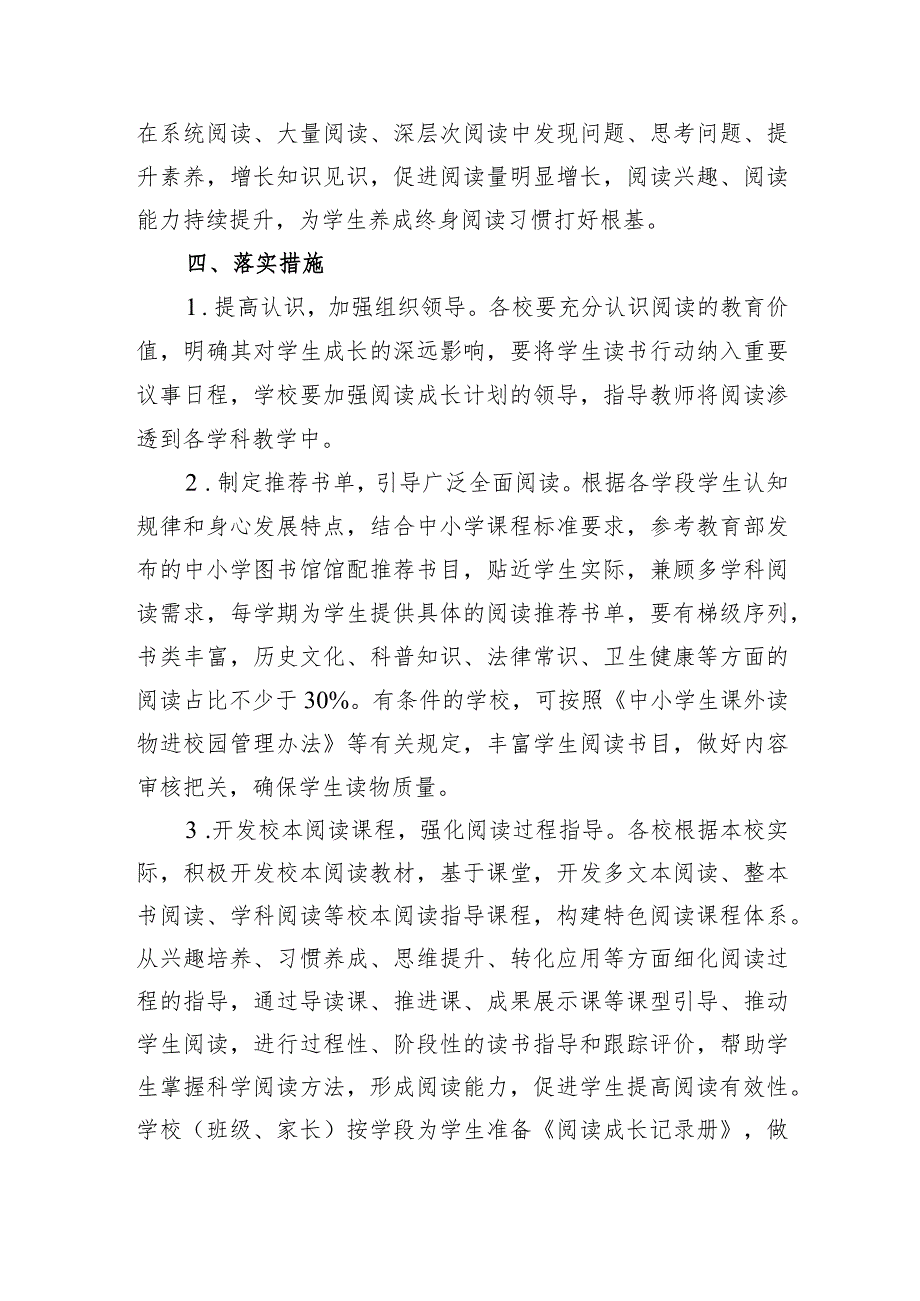 在系统阅读、大量阅读、深层次阅读中发现问题、思考问题、提
升素养，增长知识见识，促进阅读量明显增长，阅读兴趣、阅读
能力持续提升，为学生养成终身阅读习惯打好根基。
四、落实措施
1.提高认识，加强组织领导。各校要充分认识阅读的教育价
值，明确其对学生成长的深远影响，要将学生读书行动纳入重要
议事日程，学校要加强阅读成长计划的领导，指导教师将阅读渗
透到各学科教学中。
2.制定推荐书单，引导广泛全面阅读。根据各学段学生认知
规律和身心发展特点，结合中小学课程标准要求，参考教育部发
布的中小学图书馆馆配推荐书目，贴近学生实际，兼顾多学科阅
读需求，每学期为学生提供具体的阅读推荐书单，要有梯级序列，
书类丰富，历史文化、科普知识、法律常识、卫生健康等方面的
阅读占比不少于30%。有条件的学校，可按照《中小学生课外读
物进校园管理办法》等有关规定，丰富学生阅读书目，做好内容
审核把关，确保学生读物质量。
3.开发校本阅读课程，强化阅读过程指导。各校根据本校实
际，积极开发校本阅读教材，基于课堂，开发多文本阅读、整本
书阅读、学科阅读等校本阅读指导课程，构建特色阅读课程体系。
从兴趣培养、习惯养成、思维提升、转化应用等方面细化阅读过
程的指导，通过导读课、推进课、成果展示课等课型引导、推动
学生阅读，进行过程性、阶段性的读书指导和跟踪评价，帮助学
生掌握科学阅读方法，形成阅读能力，促进学生提高阅读有效性。
学校（班级、家长）按学段为学生准备《阅读成长记录册》，做